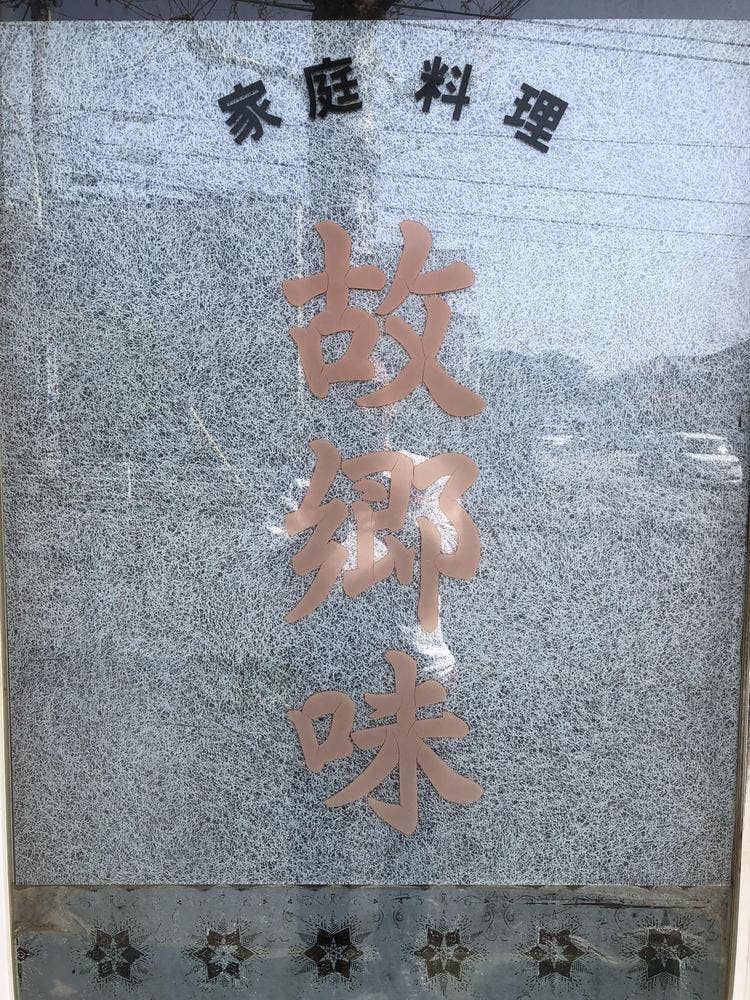 家庭料理
故郷味